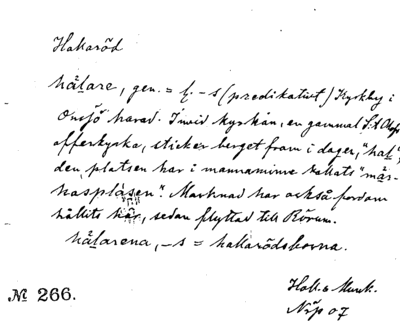 Hallaröd
hälare, gen. = f. -s (predikativt) Kyrkby i
Onsjö härad. Invid kyrkan, en gammal S:t Olofs
offerkyrka, sticker berget fram i dager, "hal",
den platsen har i mannaminne kallats "mär-
knasplåsen". Marknad har också fordom
hållits här, sedan flyttad till Rörum.
hälarena, -s = hallarödsborna.
№ 266.
Holl. & Munk.
07